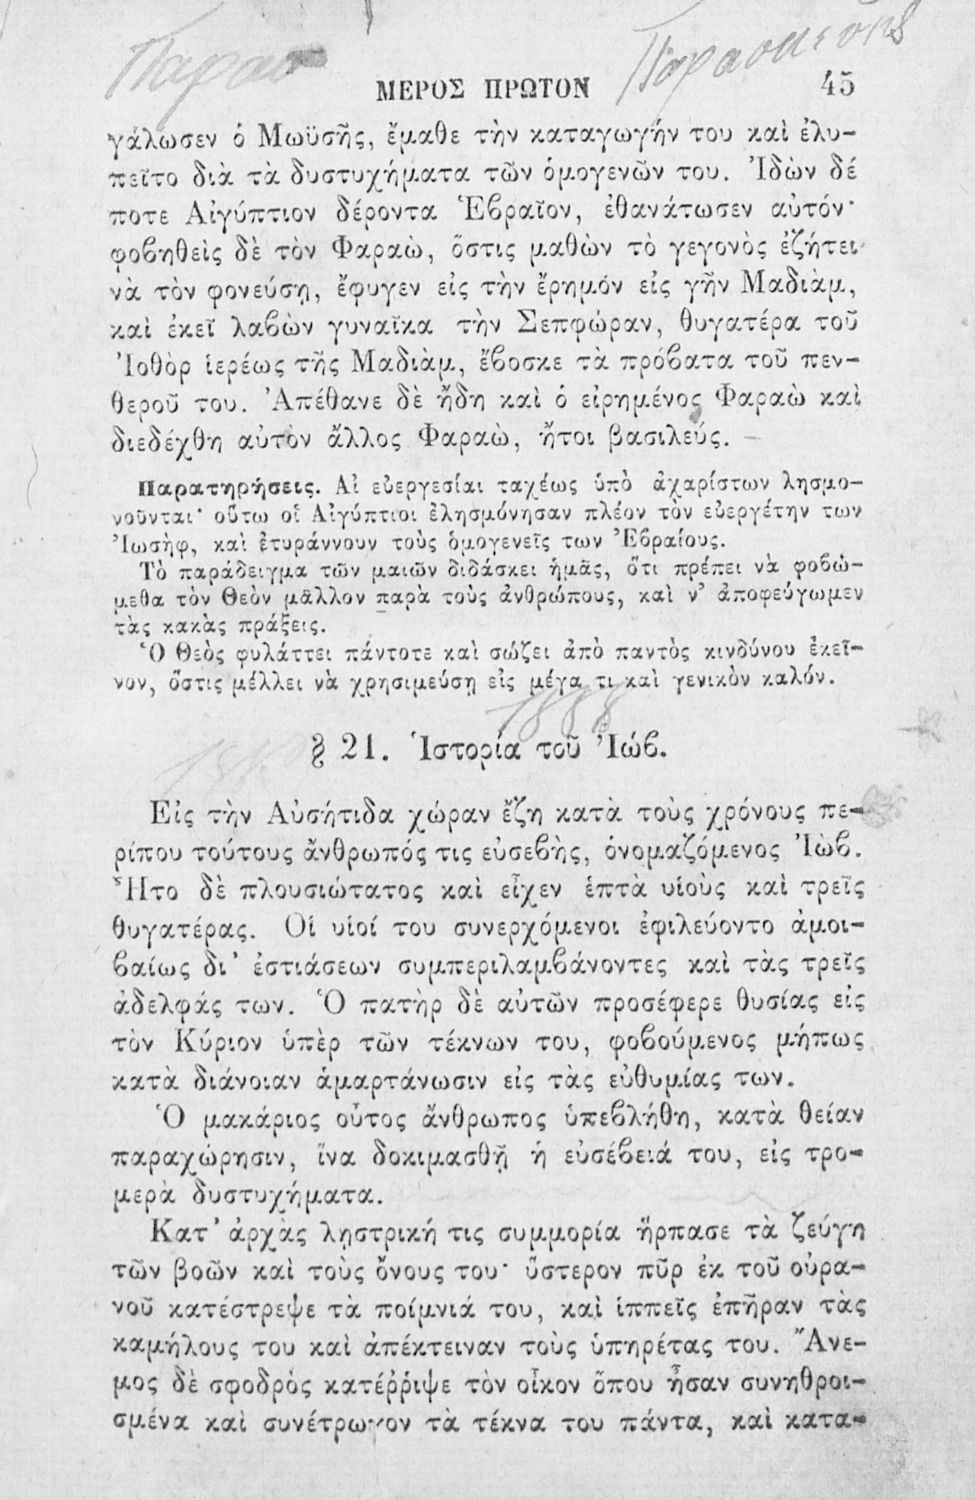 Παρασ
Παρασκευῆς
ΜΕΡΟΣ ΠΡΩΤΟΝ 45
γάλωσεν ὁ Μωϋσῆς, ἔμαθε τὴν καταγωγήν του καὶ ἐλυ-
πεῖτο διὰ τὰ δυστυχήματα τῶν ὁμογενῶν του. Ἰδὼν δέ
ποτε Αἰγύπτιον δέροντα Ἑβραῖον, ἐθανάτωσεν αὐτόν·
φοβηθεὶς δὲ τὸν Φαραὼ, ὅστις μαθὼν τὸ γεγονὸς ἐζήτει
νὰ τὸν φονεύσῃ, ἔφυγεν εἰς τὴν ἔρημόν εἰς γῆν Μαδιὰμ,
καὶ ἐκεῖ λαβὼν γυναῖκα τὴν Σεπφώραν, θυγατέρα τοῦ
Ἰοθὸρ ἱερέως τῆς Μαδιὰμ, ἔβοσκε τὰ πρόβατα τοῦ πεν-
θεροῦ του. Ἀπέθανε δὲ ἤδη καὶ ὁ εἰρημένος Φαραὼ καὶ
διεδέχθη αὐτὸν ἄλλος Φαραὼ, ἤτοι βασιλεύς.
Παρατηρήσεις. Αἱ εὐεργεσίαι ταχέως ὑπὸ ἀχαρίστων λησμο-
νοῦνται· οὕτω οἱ Αἰγύπτιοι ἐλησμόνησαν πλέον τὸν εὐεργέτην των
Ἰωσὴφ, καὶ ἐτυράννουν τοὺς ὁμογενεῖς των Ἑβραίους.
Τὸ παράδειγμα τῶν μαιῶν διδάσκει ἡμᾶς, ὅτι πρέπει νὰ φοβώ-
μεθα τὸν Θεὸν μᾶλλον παρὰ τοὺς ἀνθρώπους, καὶ ν' ἀποφεύγωμεν
τὰς κακὰς πράξεις.
Ὁ Θεὸς φυλάττει πάντοτε καὶ σώζει ἀπὸ παντὸς κινδύνου ἐκεῖ-
νον, ὅστις μέλλει νὰ χρησιμεύσῃ εἰς μέγα τι καὶ γενικὸν καλόν.
1888
§ 21. Ἱστορία τοῦ Ἰώβ.
Εἰς τὴν Αὐσήτιδα χώραν ἔζη κατὰ τοὺς χρόνους πε-
ρίπου τούτους ἄνθρωπός τις εὐσεβὴς, ὀνομαζόμενος Ἰώβ.
Ἦτο δὲ πλουσιώτατος καὶ εἶχεν ἑπτὰ υἱοὺς καὶ τρεῖς
θυγατέρας. Οἱ υἱοί του συνερχόμενοι ἐφιλεύοντο ἀμοι-
βαίως δι' ἑστιάσεων συμπεριλαμβάνοντες καὶ τὰς τρεῖς
ἀδελφάς των. Ὁ πατὴρ δὲ αὐτῶν προσέφερε θυσίας εἰς
τὸν Κύριον ὑπὲρ τῶν τέκνων του, φοβούμενος μήπως
κατὰ διάνοιαν ἁμαρτάνωσιν εἰς τὰς εὐθυμίας των.
Ὁ μακάριος οὗτος ἄνθρωπος ὑπεβλήθη, κατὰ θείαν
παραχώρησιν, ἵνα δοκιμασθῇ ἡ εὐσέβειά του, εἰς τρο-
μερὰ δυστυχήματα.
Κατ' ἀρχὰς λῃστρική τις συμμορία ἥρπασε τὰ ζεύγη
τῶν βοῶν καὶ τοὺς ὄνους του· ὕστερον πῦρ ἐκ τοῦ οὐρα-
νοῦ κατέστρεψε τὰ ποίμνιά του, καὶ ἱππεῖς ἐπῆραν τὰς
καμήλους του καὶ ἀπέκτειναν τοὺς ὑπηρέτας του. Ἄνε-
μος δὲ σφοδρὸς κατέῤῥιψε τὸν οἶκον ὅπου ἦσαν συνηθροι-
σμένα καὶ συνέτρωγον τὰ τέκνα του πάντα, καὶ κατα-